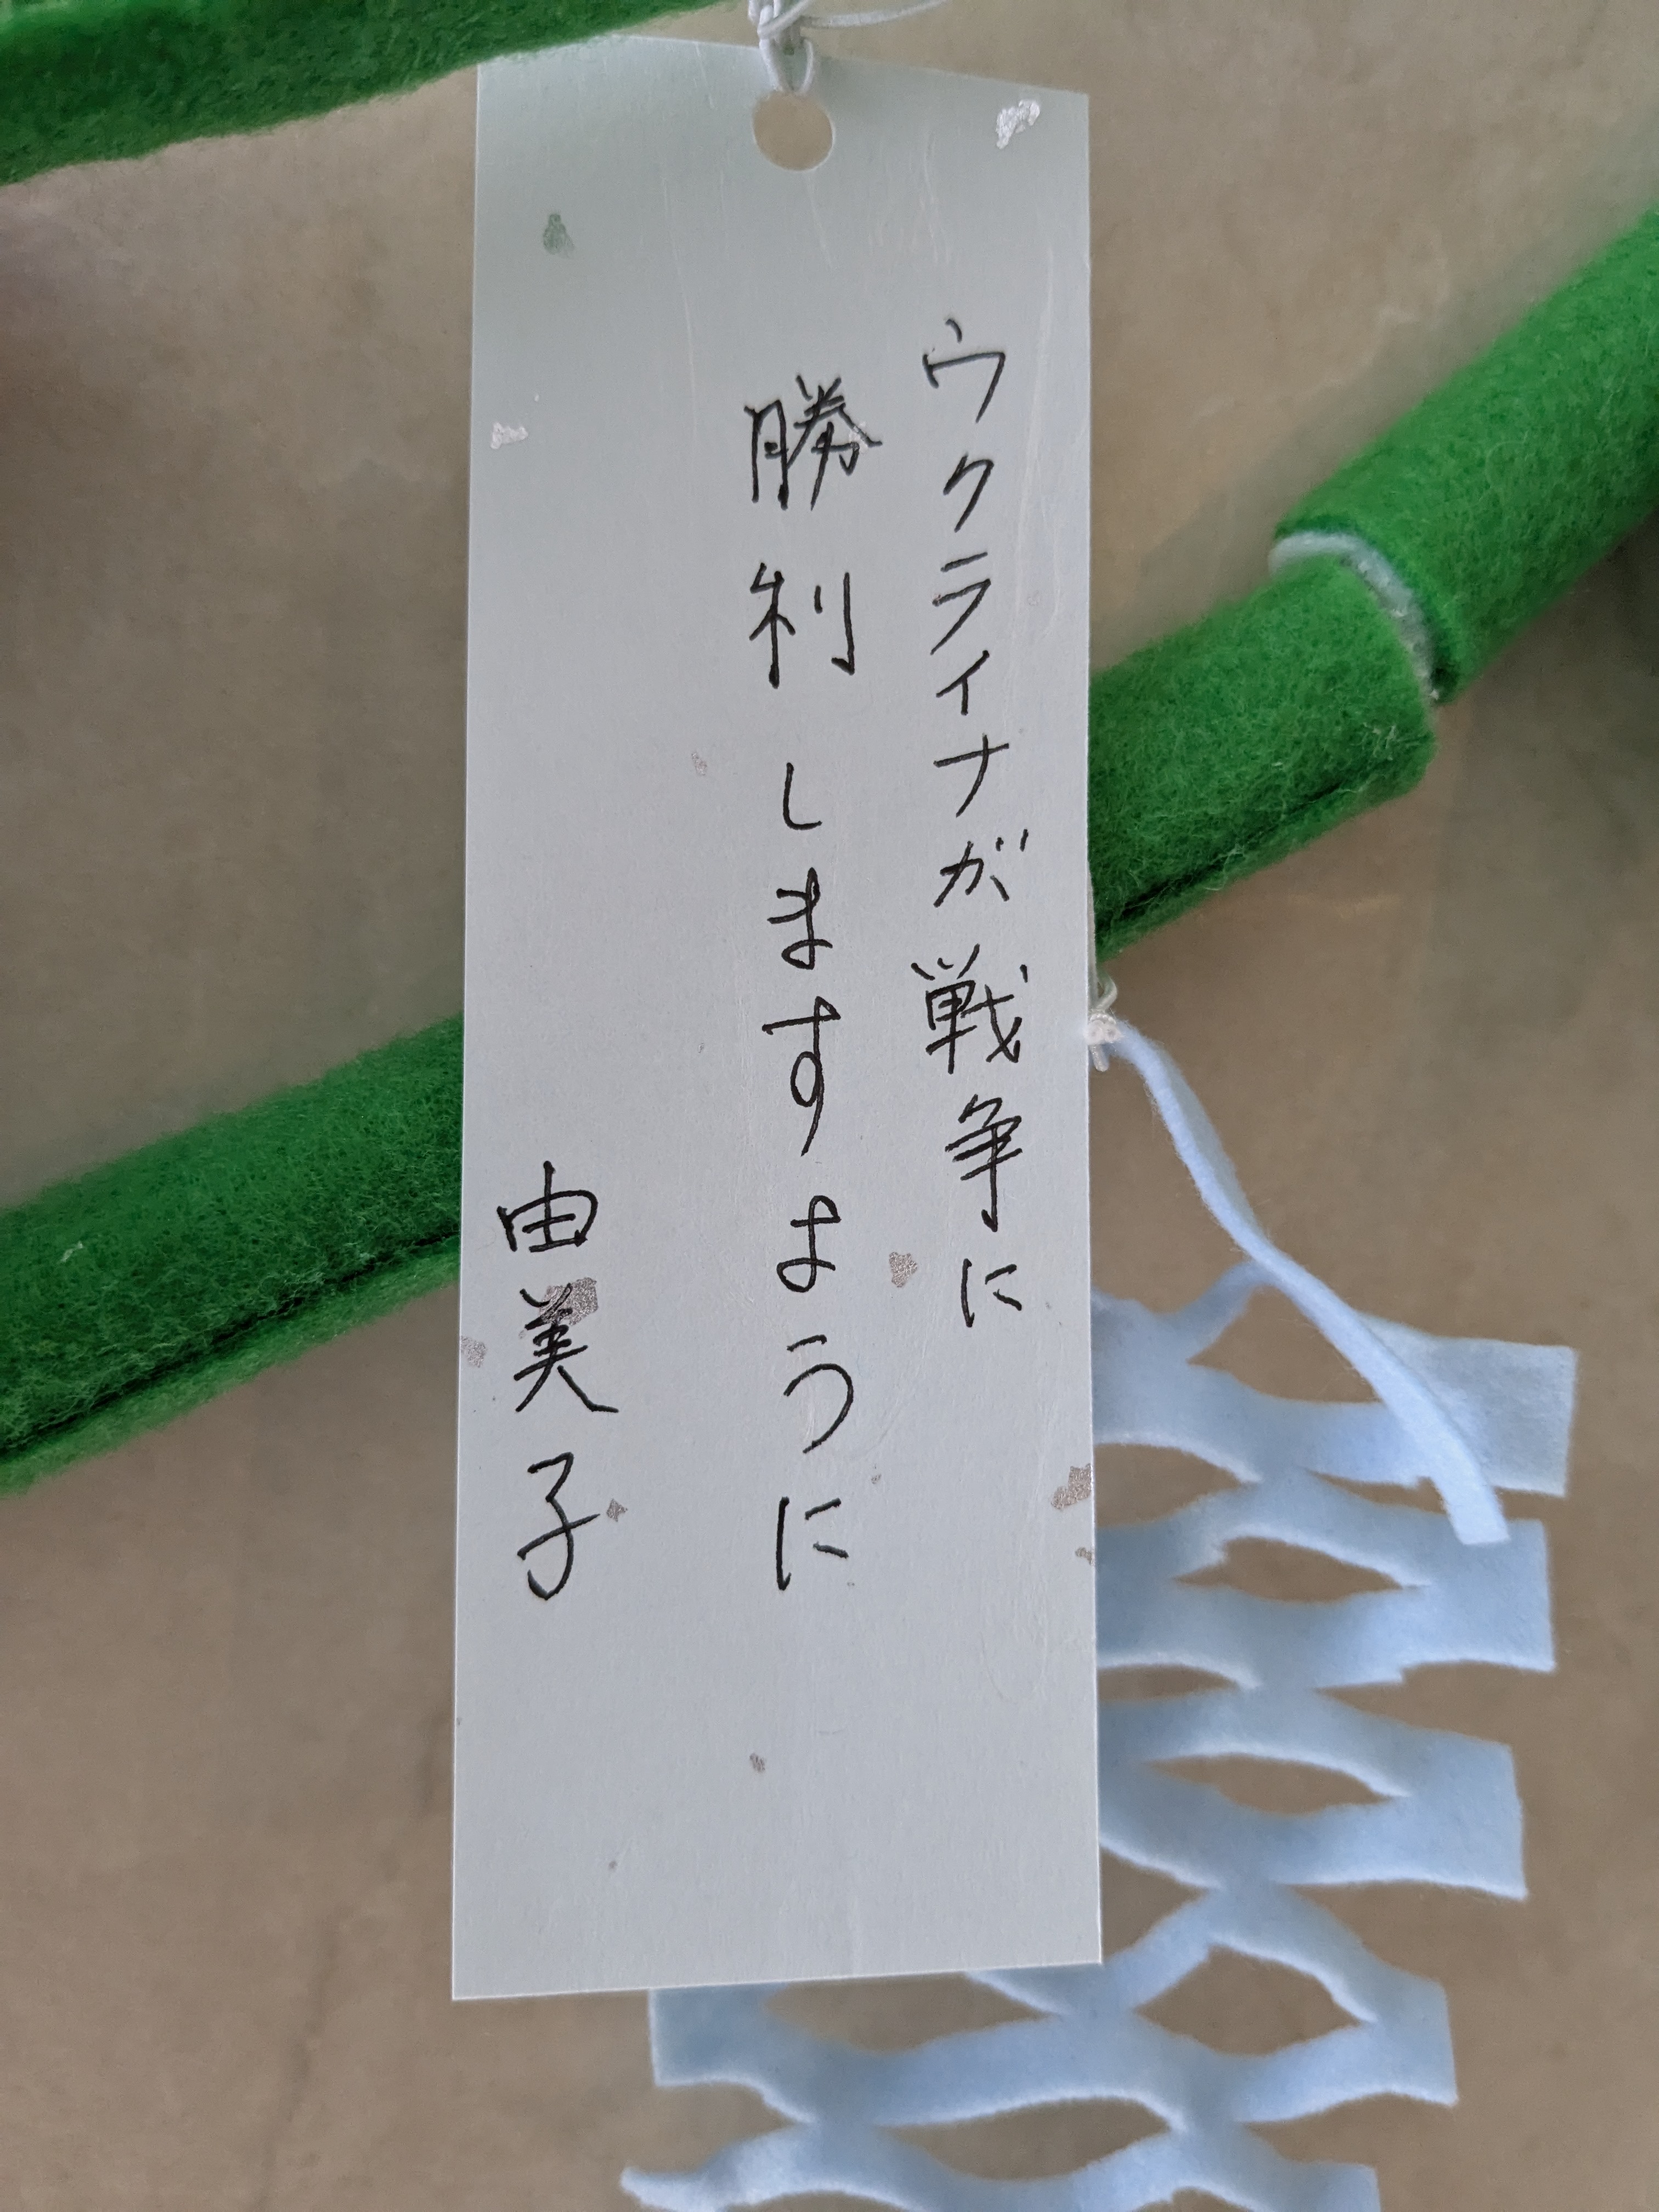 ウクライナが戦争に
勝利しますように
由美子